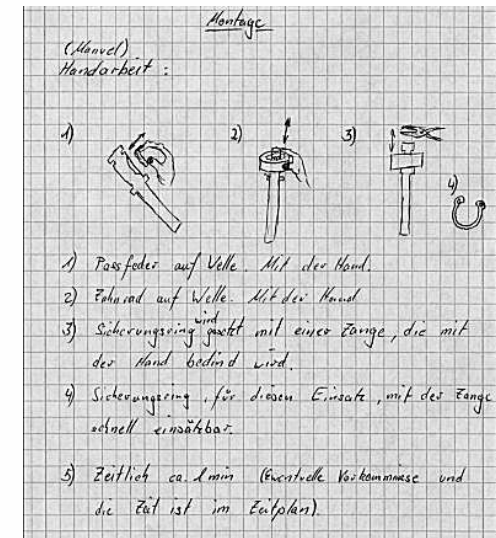 Montage
(Manuel)
Handarbeit :
1) 2) 3) 4)
1) Passfeder auf Welle. Mit der Hand.
2) Zahnrad auf Welle. Mit der Hand
3) Sicherungsring wird gesetzt mit einer Zange, die mit
der Hand bedind wird.
4) Sicherungsring, für diesen Einsatz, mit der Zange
schnell einsätzbar.
5) Zeitlich ca. 1 min (Eventuelle Vorkommnisse und
die Zeit ist im Zeitplan).